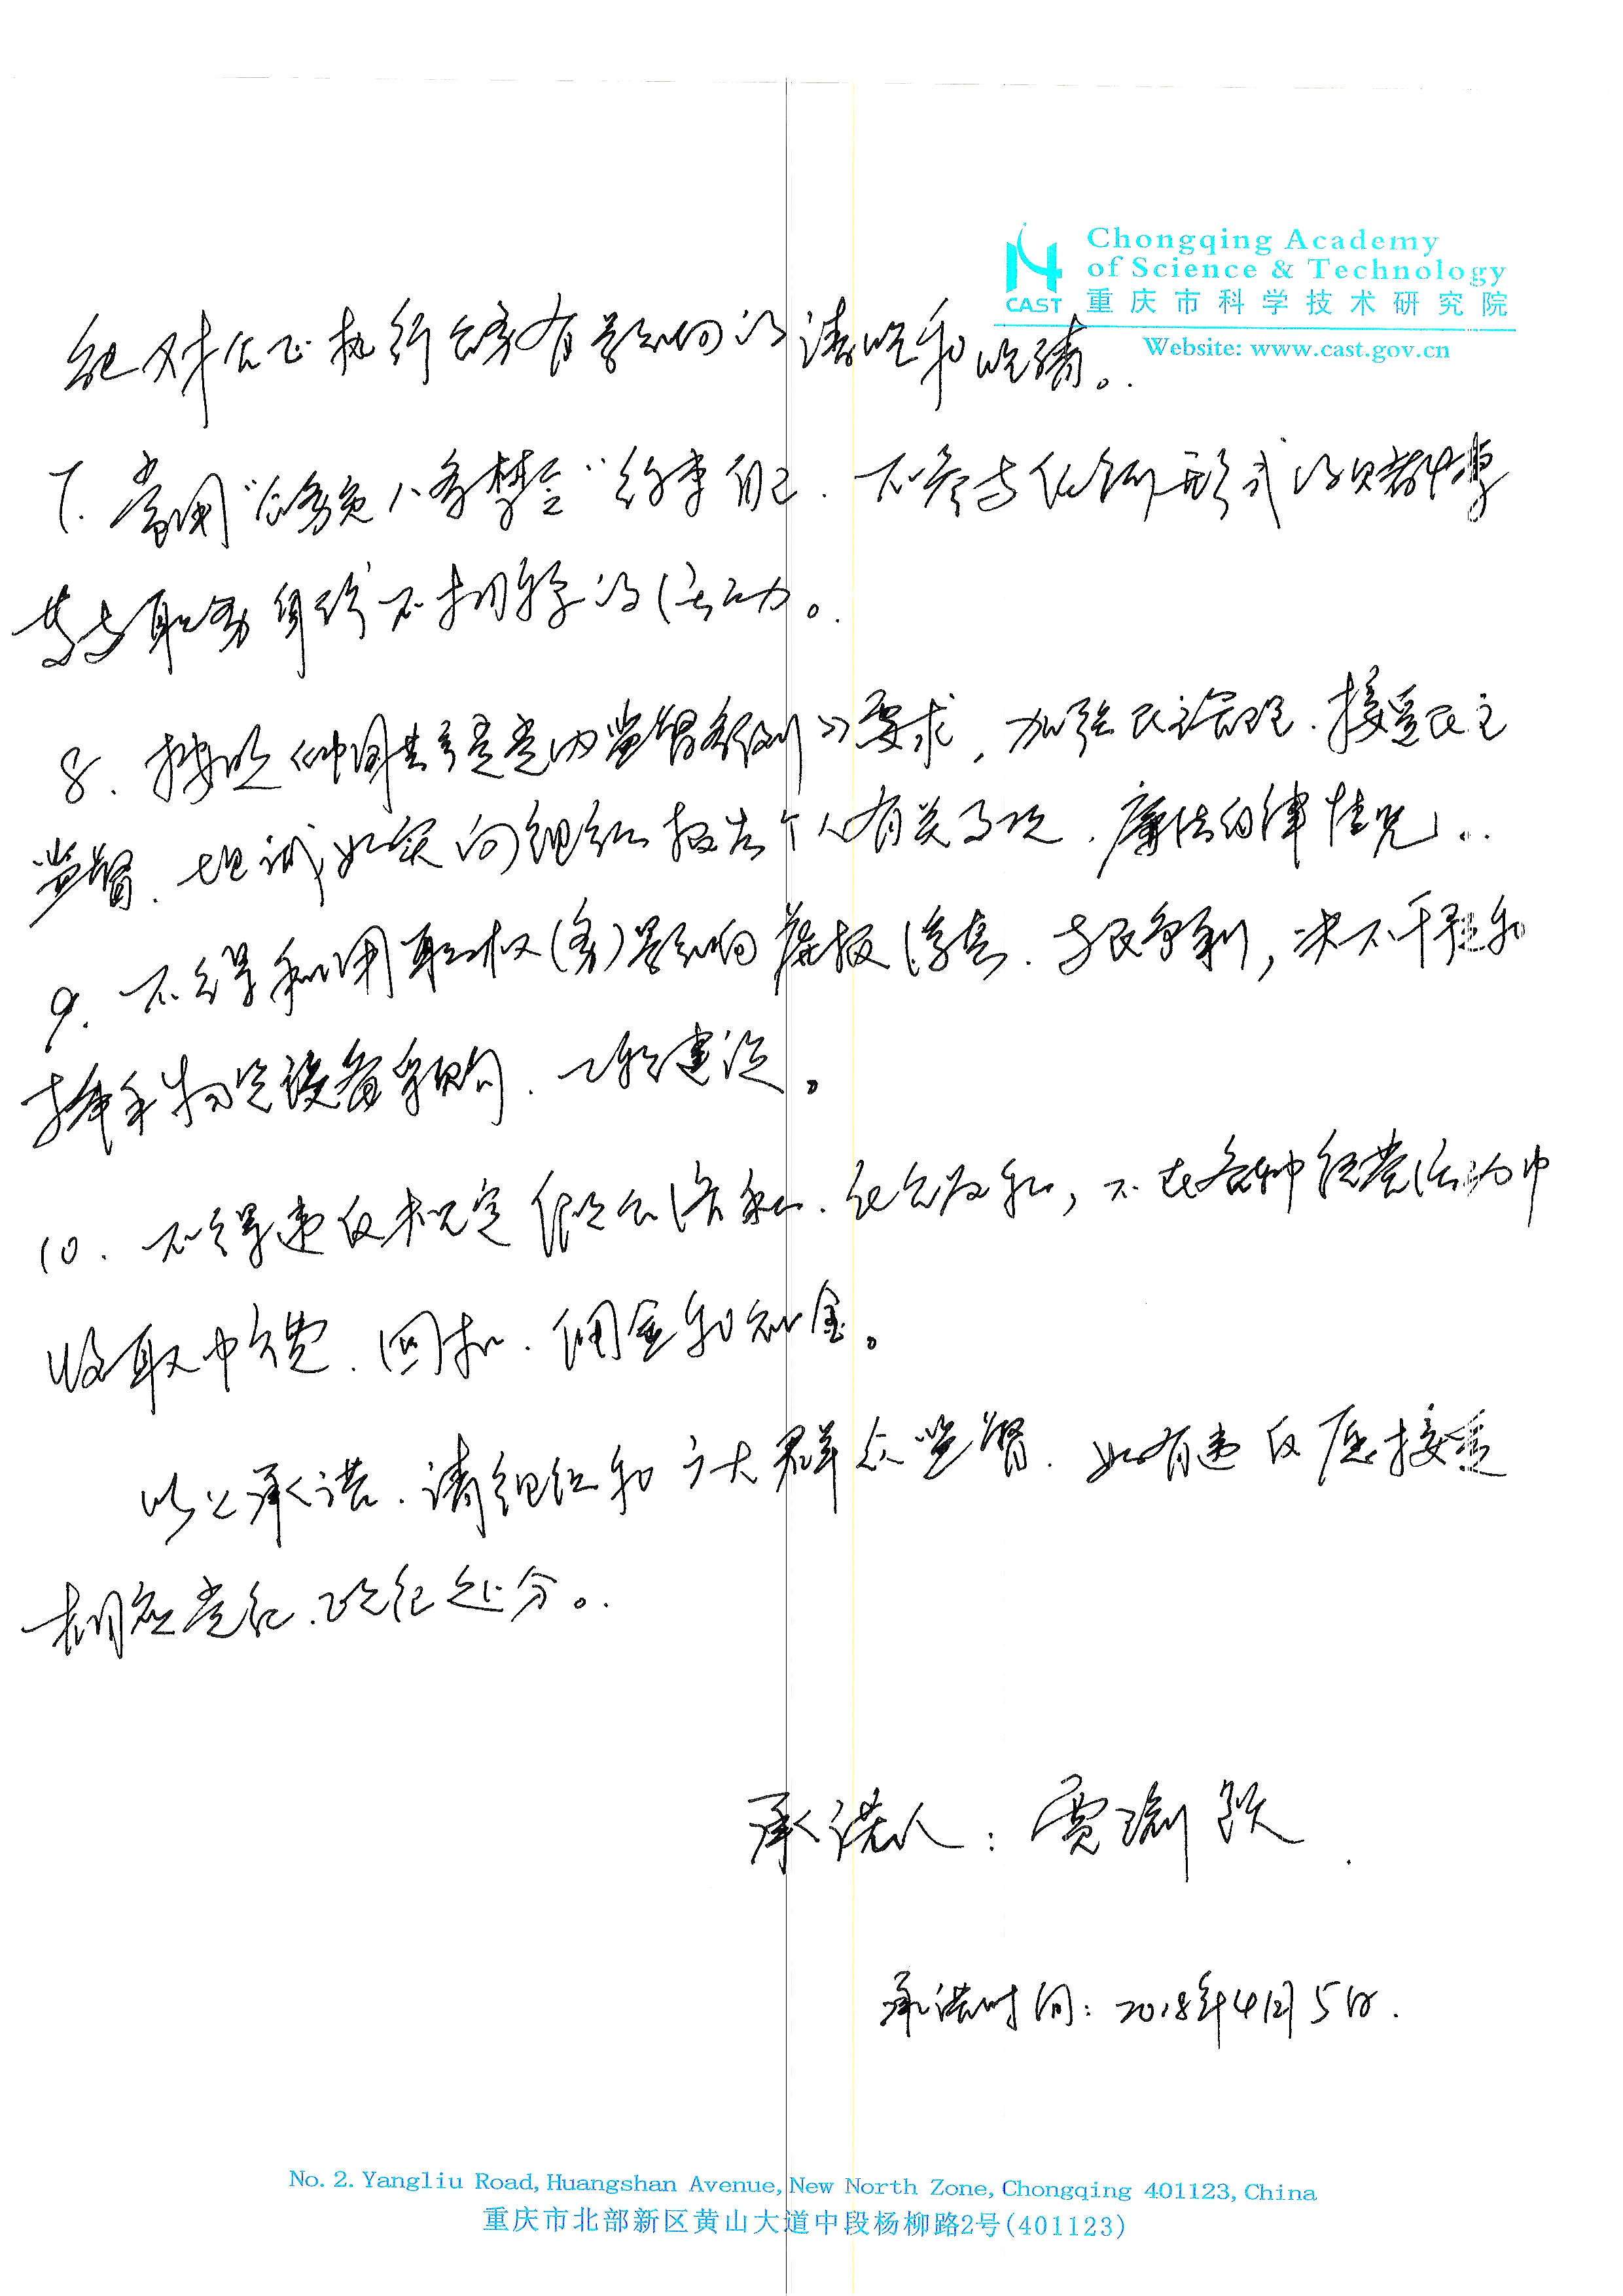 Chongqing Academy
of Science & Technology
CAST 重庆市科学技术研究院
Website: www.cast.gov.cn
绝对公正执行公务有影响的请吃和吃请。
7. 常用“公务员八条禁令”约束自己、不参与任何形式的赌博
等与职务身份不相符的活动。
8. 按照《中国共产党党内监督条例》要求，加强民主管理、接受民主
监督、坦诚如实向组织报告个人有关事项、廉洁自律情况。
9. 不得利用职权(务)影响谋取信息、与民争利，决不干预和
插手物资设备采购、工程建设。
10. 不得违反规定假公济私、化公为私，不在各种经营活动中
收取中介费、回扣、佣金和礼金。
以上承诺、请组织和广大群众监督、如有违反愿接受
相应党纪、政纪处分。
承诺人：贾渊跃
承诺时间：2018年4月5日.
No. 2. Yangliu Road, Huangshan Avenue, New North Zone, Chongqing 401123, China
重庆市北部新区黄山大道中段杨柳路2号(401123)